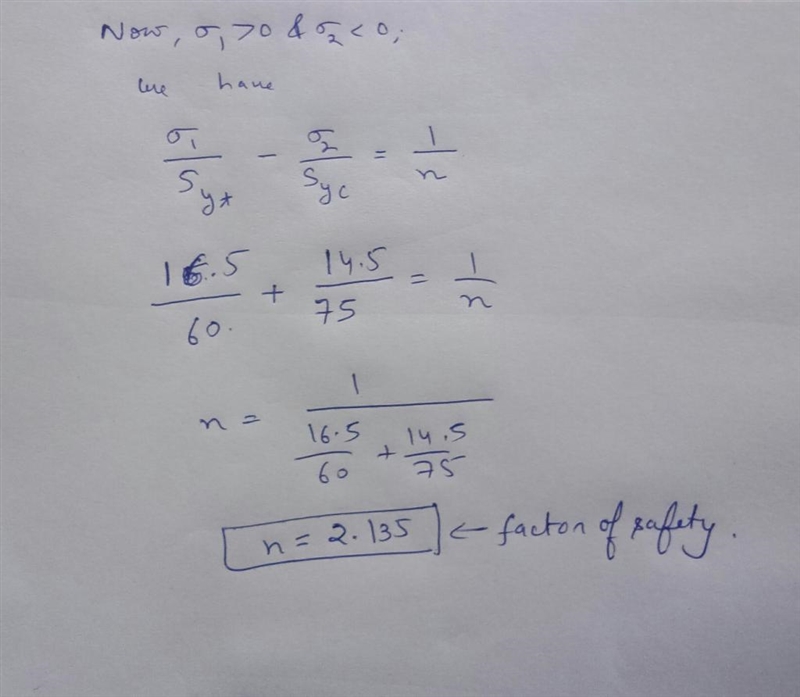 Now, σ₁ > 0 & σ₂ < 0,
we have
σ₁/Syt - σ₂/Syc = 1/n
16.5/60. + 14.5/75 = 1/n
n = 1/(16.5/60 + 14.5/75)
n = 2.135 ← factor of safety.